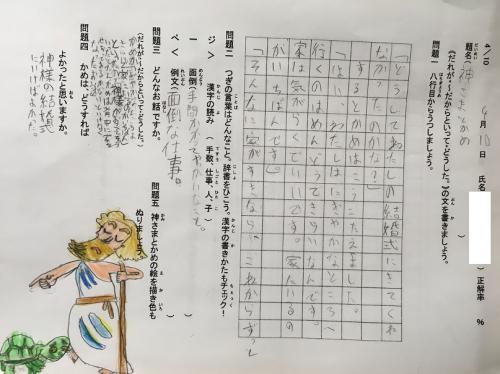 4/10
題名 神さまとかめ
4月10日 氏名 正解率 %
《(だれが〜だからといってどうした。)の文を書きましょう。
問題一 八行目からうつしましょう。
「どうしてわたしの結婚式にきてくれ
なかったのかな?」
するとかめはこうこたえました。
「はい、わたしはにぎやかなところへ
行くのはめんどうできらいなんです。
家のほうが気らくで、家にいるの
がいちばんです。」
「そんなに家がすきなら、これからずっと
問題二 つぎの言葉はどんなこと。辞書をひこう。漢字の書きかたもチェック!
ジ> 漢字の読み(手数、仕事、人、子)
一 面倒(手間がかかってやっかいなこと。
ペ< 例文(面倒な仕事。
問題三 どんなお話ですか。
(だれが〜だからといってどうした。)
問題四 かめは、どうすれば
よかったと思いますか。
神様の結婚式
にいけばよかった。
問題五 神さまとかめの絵を描き色も
ぬりましょう。